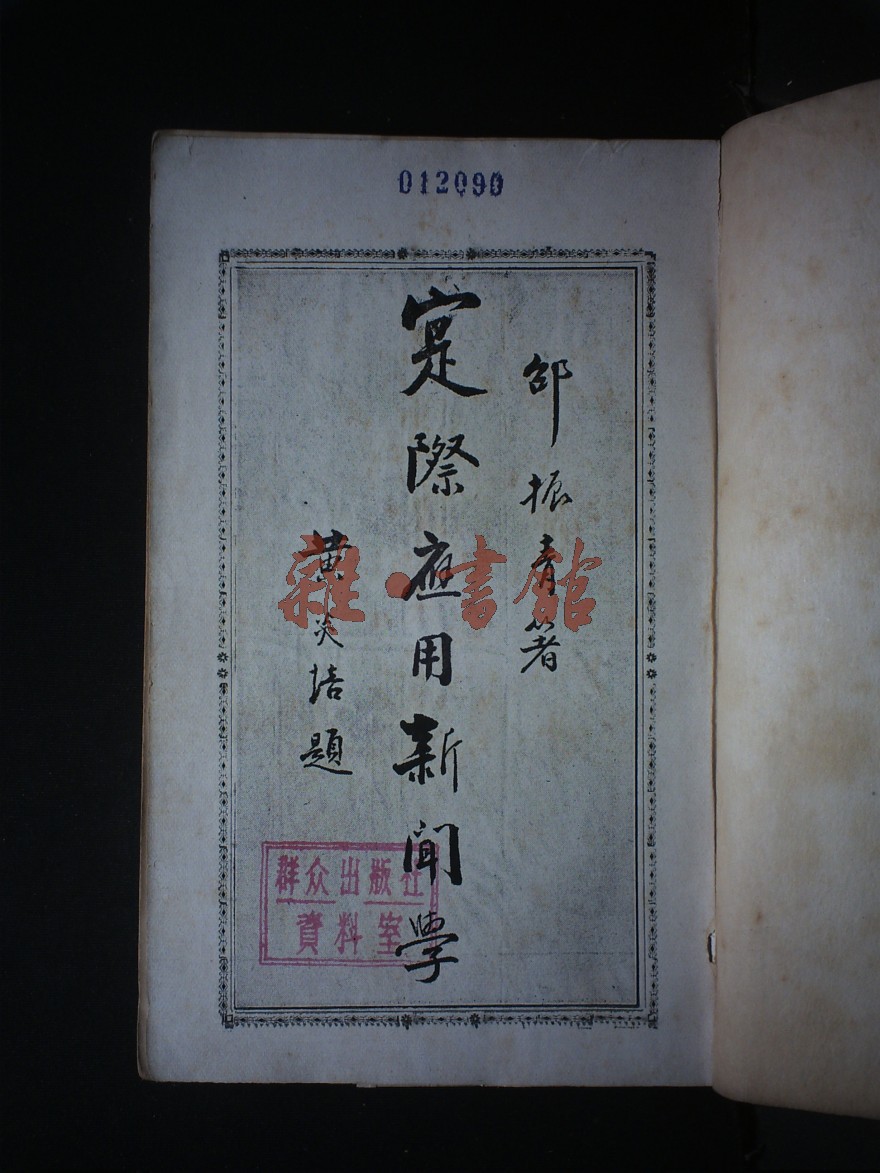 012090
邵振青著
寔際應用新聞學
黃炎培題
雜·書館
群众出版社
資料室